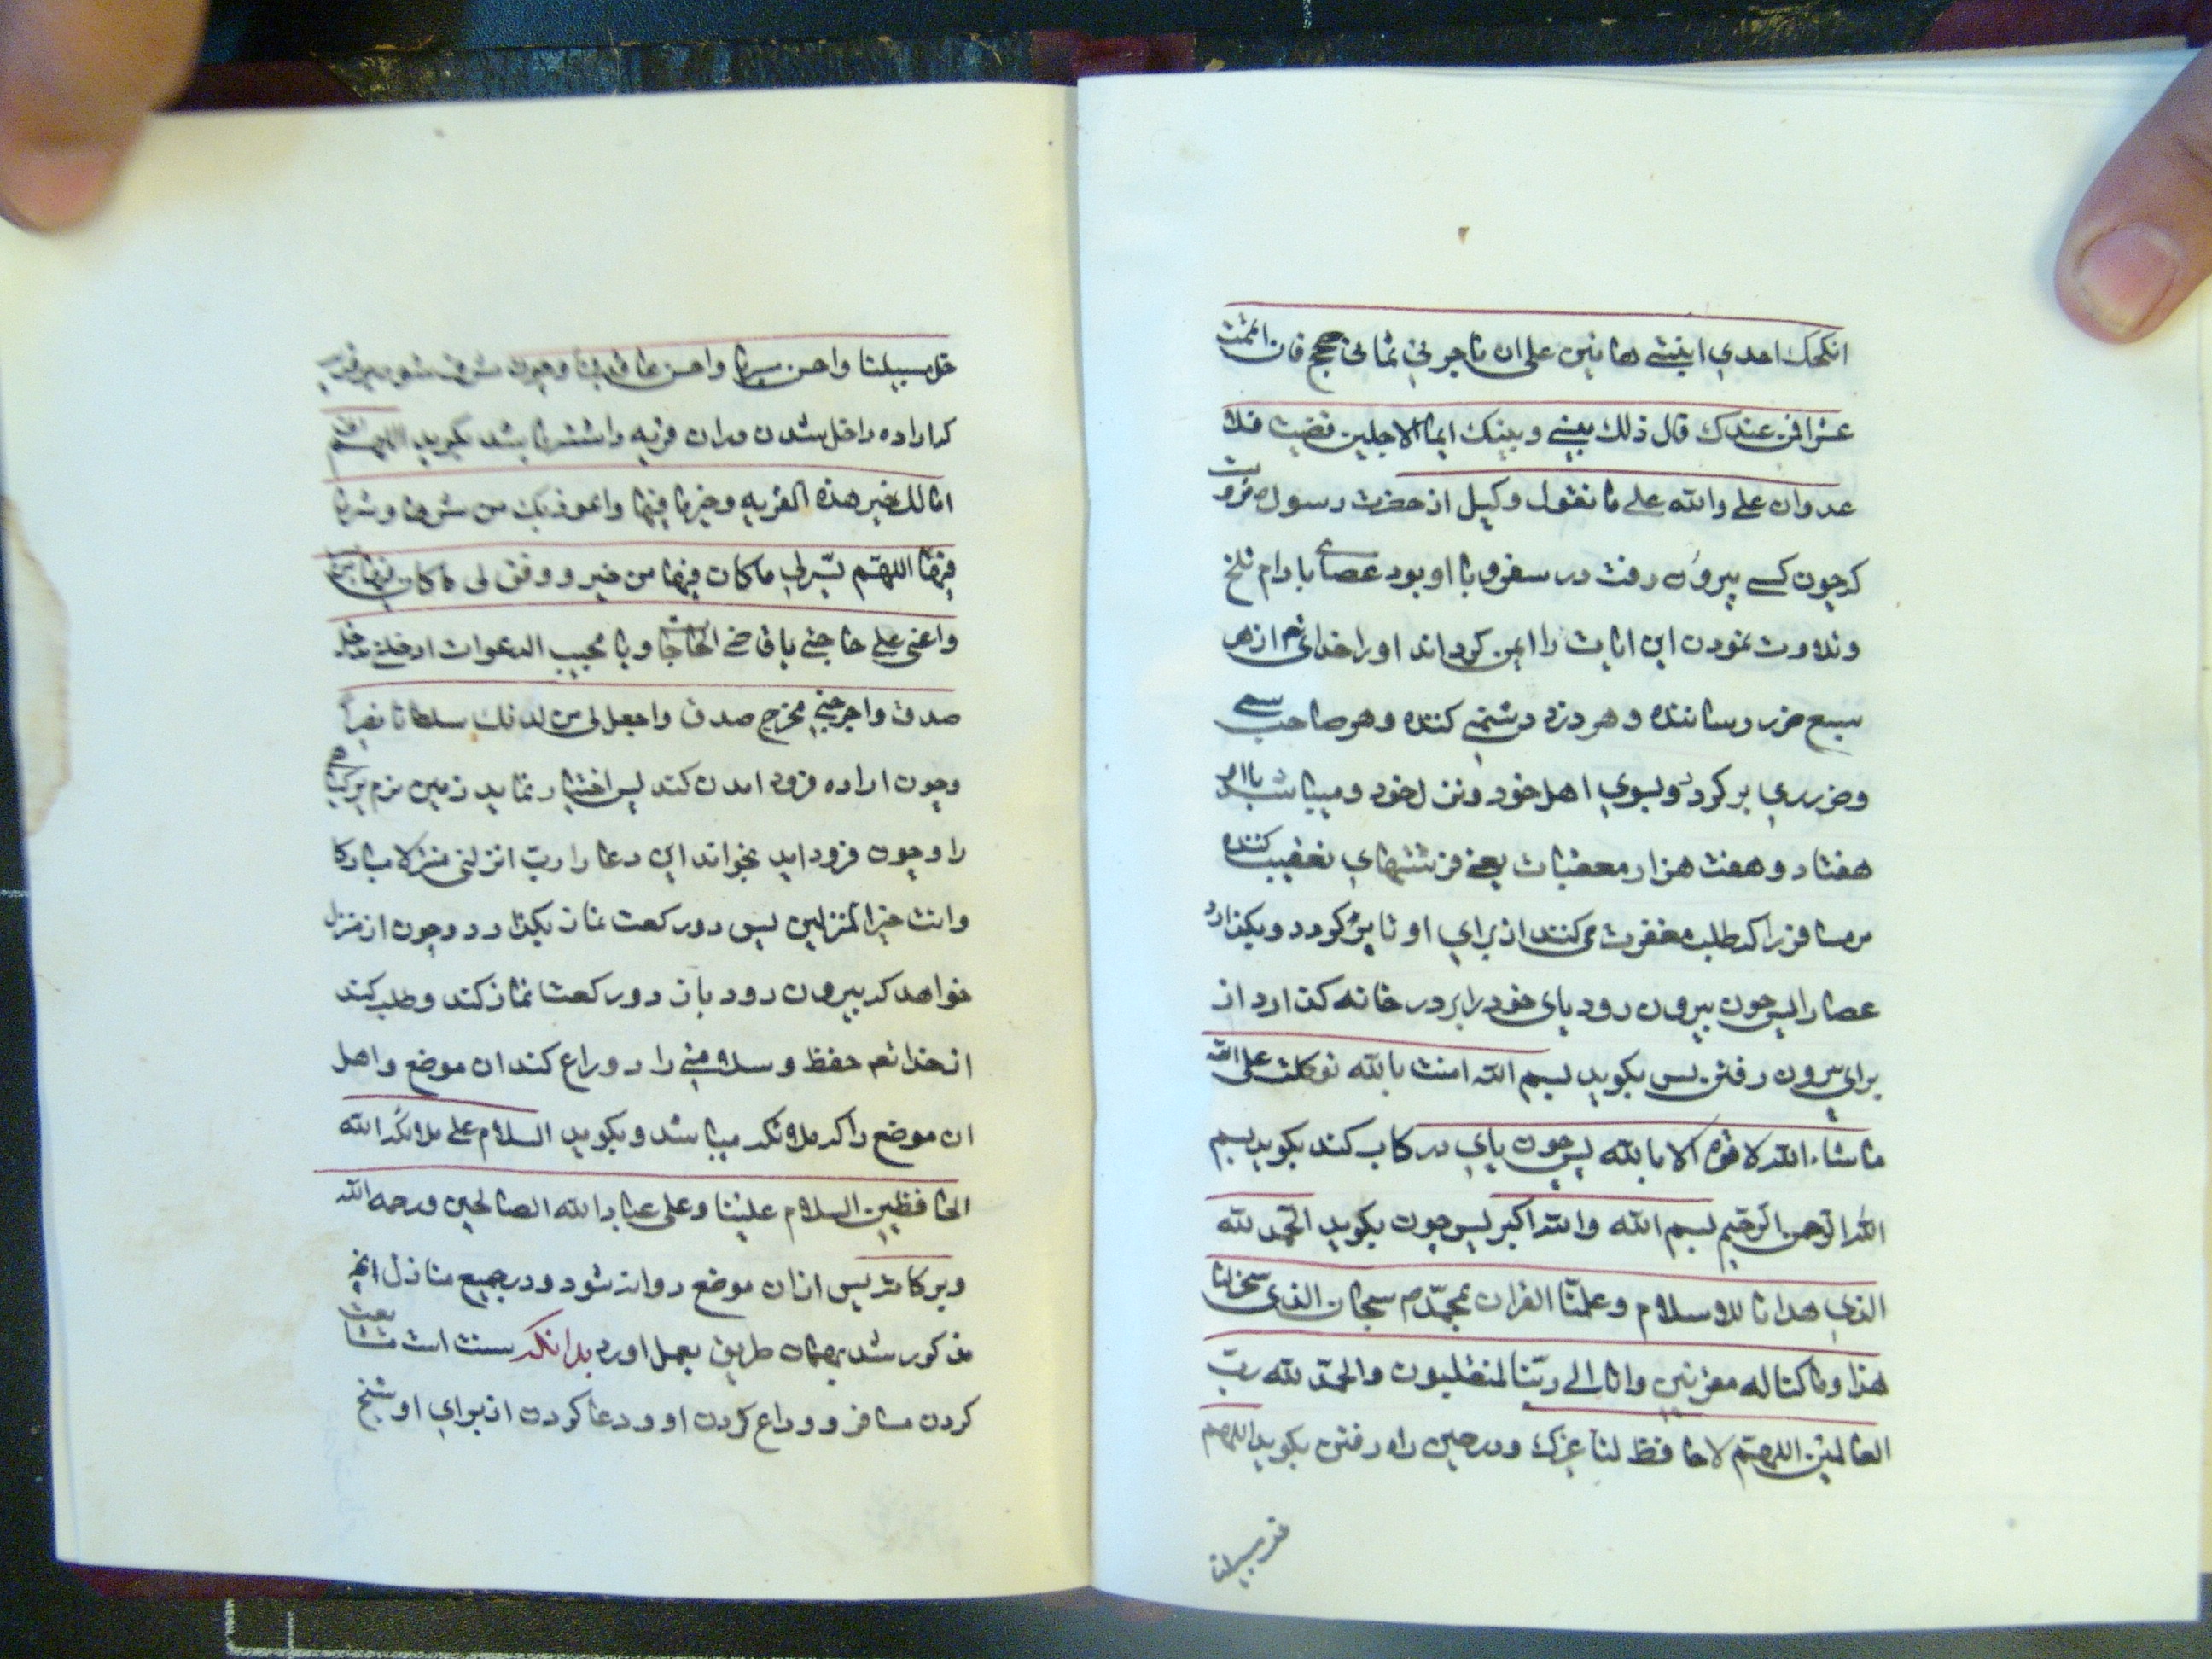 انکحک احدی ابنتی هاتین علی ان تاجرنی ثمانی حجج فان اتممت
عشرا فمن عندک قال ذلک بینی و بینک ایما الاجلین قضیت فلا
عدوان علی والله علی ما نقول وکیل از حضرت رسول ص مرویت
که چون کسی بیرون رفت در سفر و با او بود عصای بادام تلخ
و تلاوت نمودن این ایات را ایمن کرداند او را خدای تع از هر
سبع ضرر رساننده و هر دزد دشمنی کننده و هر صاحب سمی
و ضرری بر کردد و بسوی اهل خود و منزل خود و میباشد با او
هفتاد و هفت هزار معقبات یعنی فرشتهای تعقیب کننده
مر مسافر را که طلب مغفرت می کنند از برای او تا بر کردد و بکذارد
عصا را پس چون بیرون رود پای خود را بر در خانه کذارد از
برای بیرون رفتن پس بکوید بسم الله امنت بالله توکلت علی الله
ما شاء الله لا قوه الا بالله پس چون پای در رکاب کند بکوید بسم
الله الرحمن الرحیم بسم الله والله اکبر پس چون بکوید الحمد لله
الذی هدانا للاسلام و علمنا القران بمحمد ص سبحان الذی سخر لنا
هذا و ما کنا له مقرنین و انا الی ربنا لمنقلبون والحمد لله رب
العالمین اللهم لا حافظ لنا غیرک و در حین راه رفتن بکوید اللهم
خل سبیلنا
خل سبیلنا واحسن سیرنا واحسن عاقبتنا و چون مشرف شود بر قریه
که اراده داخل شدن دران قریه داشته باشد بکوید اللهم انی
اسالک خیر هذه القریه و خیر ما فیها واعوذ بک من شرها و شر ما
فیها اللهم یسر لی ما کان فیها من خیر و وفق لی ما کان فیها من
واعنی علی حاجتی یا قاضی الحاجات و یا مجیب الدعوات ادخلنی مدخل
صدق واخرجنی مخرج صدق واجعل لی من لدنک سلطانا نصیرا
و چون اراده فرود امدن کند پس اختیار نماید زمین نرم پر کیاه
را و چون فرود اید بخواند این دعا را رب انزلنی منزلا مبارکا
وانت خیر المنزلین پس دو رکعت نماز بکذارد و چون از منزل
خواهد که بیرون رود باز دو رکعت نماز کند و طلب کند
از خدا تعم حفظ و سلامتی را و وداع کند ان موضع و اهل
ان موضع را که ملائکه میباشد و بکوید السلام علی ملائکه الله
الحافظین السلام علینا و علی عباد الله الصالحین و رحمه الله
و برکاته پس از ان موضع روانه شود و در جمیع منازل انچه
مذکور شد بهمان طریق بعمل اورد بدانکه سنت است مشایعت
کردن مسافر و وداع کردن او و دعا کردن از برای او شیخ